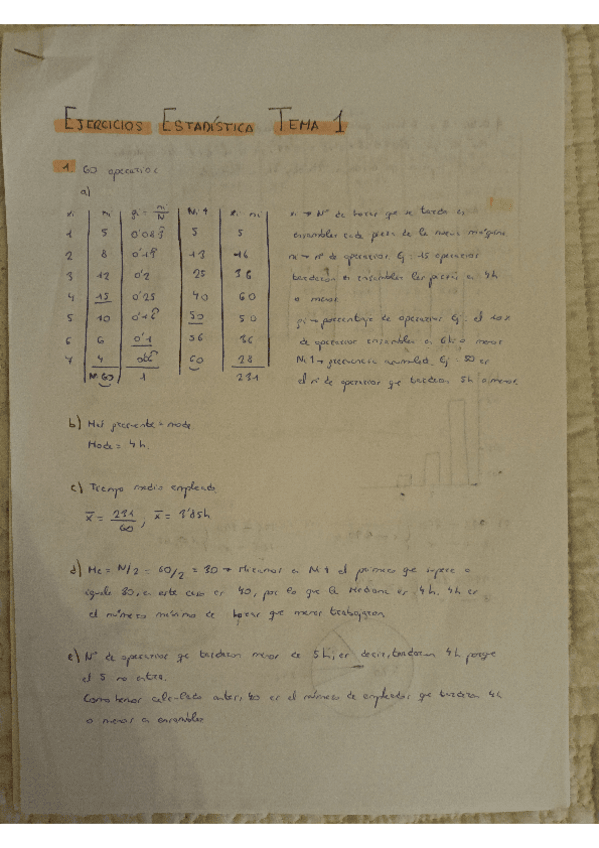 EJERCICIOS ESTADÍSTICA TEMA 1
1 60 operarios
a)
xi ni gi = ni/N Ni↑ xi · ni
1 5 0'083 5 5
2 8 0'13 13 16
3 12 0'2 25 36
4 15 0'25 40 60
5 10 0'16 50 50
6 6 0'1 56 36
7 4 0'06 60 28
N=60 1 231
xi → Nº de horas que se tarda en
ensamblar cada pieza de la nueva máquina
ni → nº de operarios. Ej: 15 operarios
tardaron en ensamblar las piezas en 4h
o menos
gi → porcentaje de operarios Ej: el 10%
de operarios ensamblan en 6h o menos
Ni↑ → frecuencia acumulada. Ej: 50 es
el nº de operarios que tardaron 5h o menos
b) Más frecuente = moda
Moda = 4h.
c) Tiempo medio empleado
x̄ = 231/60, x̄ = 3'85h
d) Me = N/2 = 60/2 = 30 → Miramos en Ni↑ el primero que supere o
iguale 30, en este caso es 40, por lo que la Mediana es 4h. 4h es
el número mínimo de horas que menos trabajaron
e) Nº de operarios que tardaron menos de 5h, es decir, tardaron 4h porque
el 5 no entra.
Como hemos calculado antes, 40 es el número de empleados que tardaron 4h
o menos en ensamblar